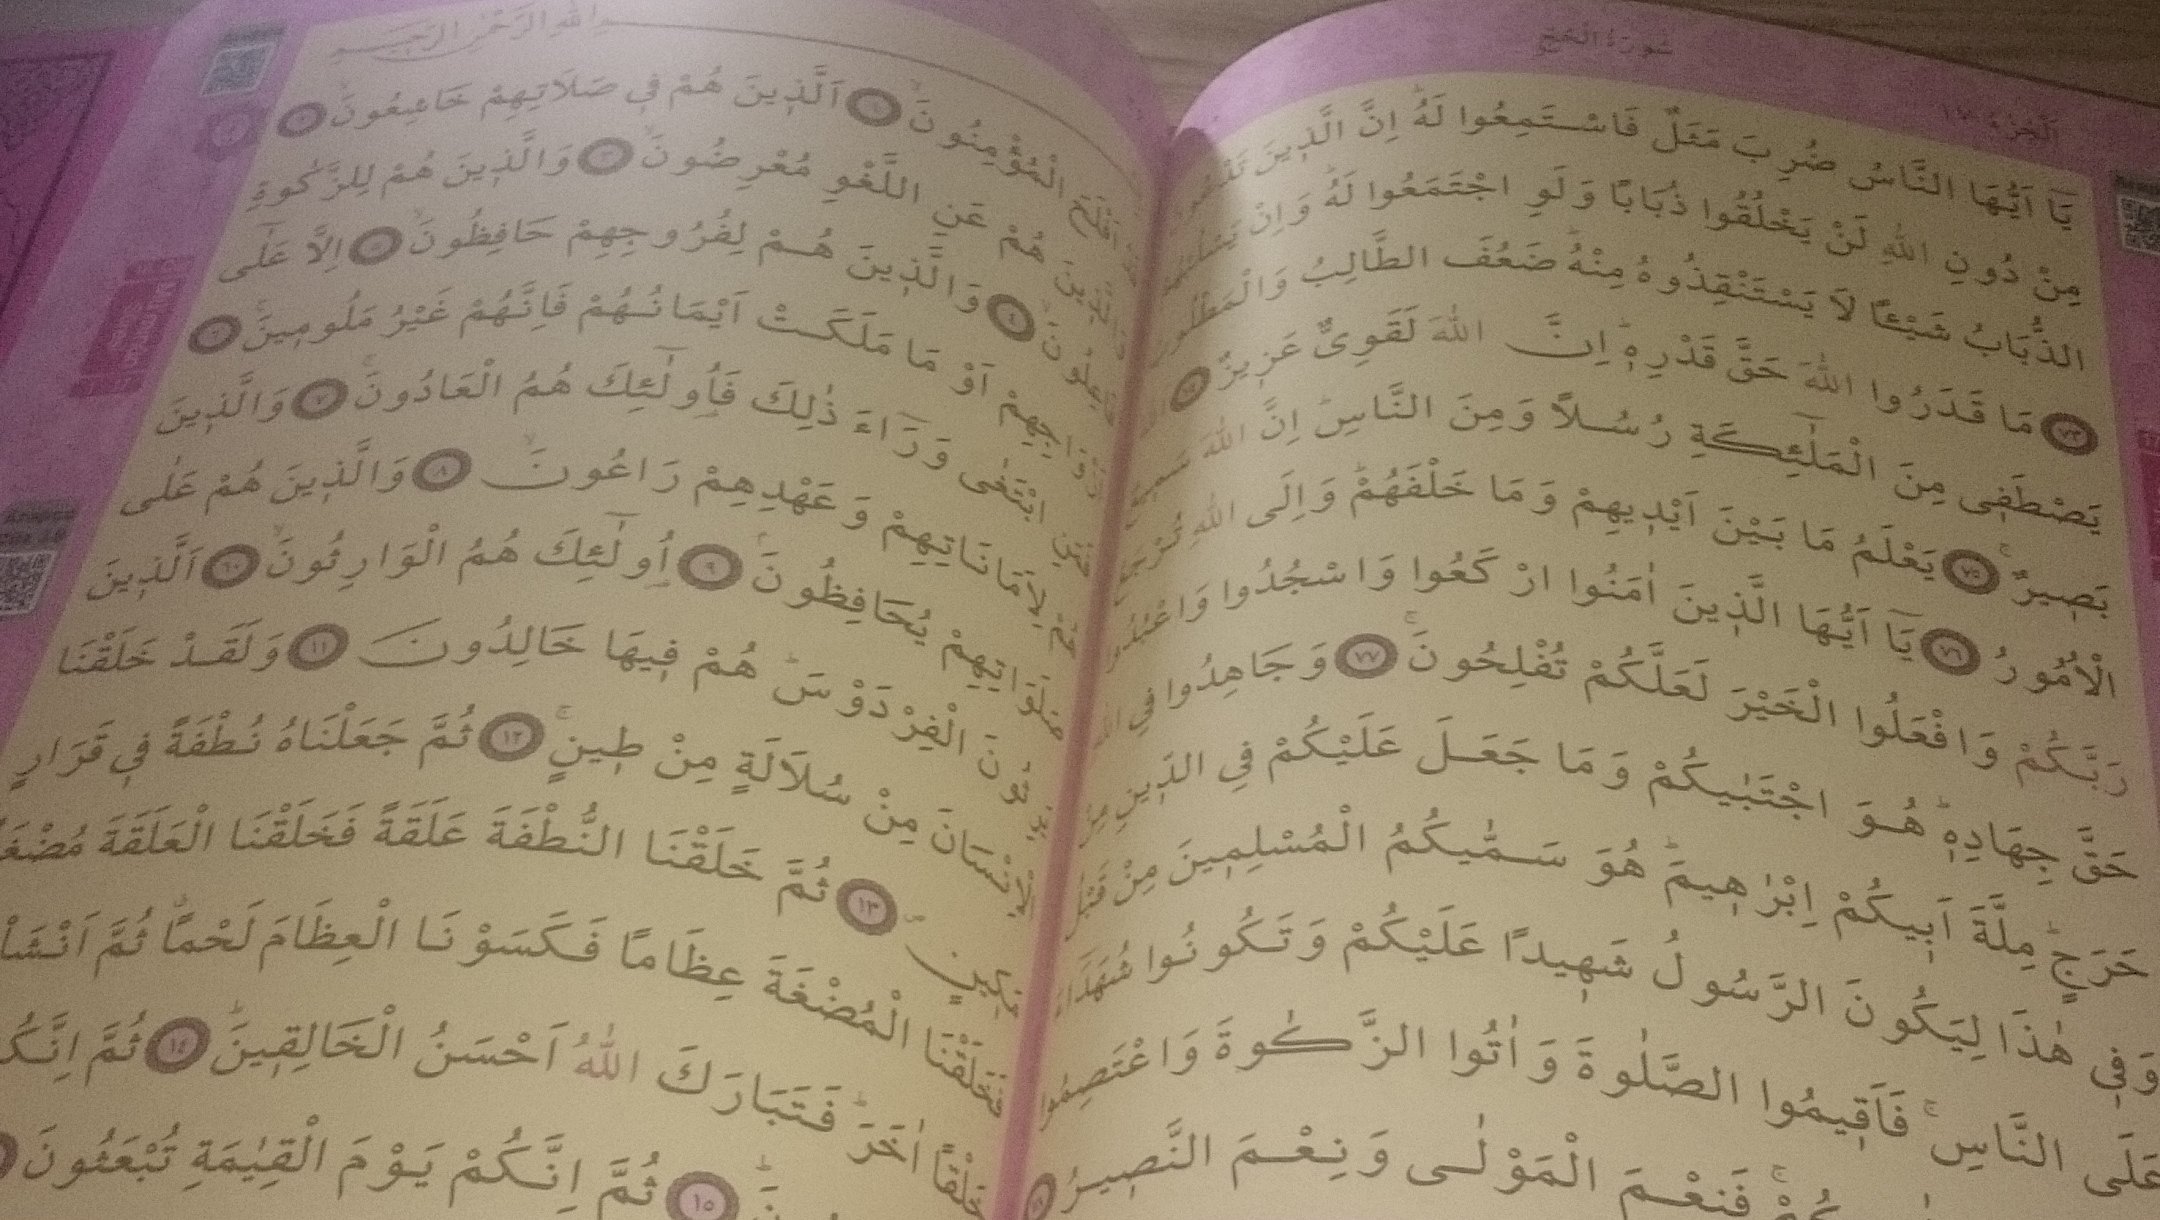 سُورَةُ الْحَجِّ
اَلْجُزْءُ ١٧
يَٓا اَيُّهَا النَّاسُ ضُرِبَ مَثَلٌ فَاسْتَمِعُوا لَهُۜ اِنَّ الَّذٖينَ
مِنْ دُونِ اللّٰهِ لَنْ يَخْلُقُوا ذُبَابًا وَلَوِ اجْتَمَعُوا لَهُۜ وَاِنْ
الذُّبَابُ شَيْـًٔا لَا يَسْتَنْقِذُوهُ مِنْهُۜ ضَعُفَ الطَّالِبُ وَالْمَطْلُوبُ
٧٣ مَا قَدَرُوا اللّٰهَ حَقَّ قَدْرِهٖۜ اِنَّ اللّٰهَ لَقَوِىٌّ عَزٖيزٌ
يَصْطَفٖى مِنَ الْمَلٰٓئِكَةِ رُسُلًا وَمِنَ النَّاسِۜ اِنَّ اللّٰهَ سَمٖيعٌ
بَصٖيرٌۚ ٧٥ يَعْلَمُ مَا بَيْنَ اَيْدٖيهِمْ وَمَا خَلْفَهُمْۜ وَاِلَى اللّٰهِ تُرْجَعُ
الْاُمُورُ ٧٦ يَٓا اَيُّهَا الَّذٖينَ اٰمَنُوا ارْكَعُوا وَاسْجُدُوا وَاعْبُدُوا
رَبَّكُمْ وَافْعَلُوا الْخَيْرَ لَعَلَّكُمْ تُفْلِحُونَۚ ٧٧ وَجَاهِدُوا فِي اللّٰهِ
حَقَّ جِهَادِهٖۜ هُوَ اجْتَبٰيكُمْ وَمَا جَعَلَ عَلَيْكُمْ فِي الدّٖينِ مِنْ
حَرَجٍۜ مِلَّةَ اَبٖيكُمْ اِبْرٰهٖيمَۜ هُوَ سَمّٰيكُمُ الْمُسْلِمٖينَ مِنْ قَبْلُ
وَفٖي هٰذَا لِيَكُونَ الرَّسُولُ شَهٖيدًا عَلَيْكُمْ وَتَكُونُوا شُهَدَٓاءَ
عَلَى النَّاسِۚ فَاَقٖيمُوا الصَّلٰوةَ وَاٰتُوا الزَّكٰوةَ وَاعْتَصِمُوا
فَنِعْمَ الْمَوْلٰى وَنِعْمَ النَّصٖيرُ
اللّٰهِ الرَّحْمٰنِ الرَّحٖيمِ
اَفْلَحَ الْمُؤْمِنُونَۙ ١ اَلَّذٖينَ هُمْ فٖي صَلَاتِهِمْ خَاشِعُونَۙ ٢
وَالَّذٖينَ هُمْ عَنِ اللَّغْوِ مُعْرِضُونَۙ ٣ وَالَّذٖينَ هُمْ لِلزَّكٰوةِ
فَاعِلُونَۙ ٤ وَالَّذٖينَ هُمْ لِفُرُوجِهِمْ حَافِظُونَۙ ٥ اِلَّا عَلٰٓى
اَزْوَاجِهِمْ اَوْ مَا مَلَكَتْ اَيْمَانُهُمْ فَاِنَّهُمْ غَيْرُ مَلُومٖينَۚ ٦
فَمَنِ ابْتَغٰى وَرَٓاءَ ذٰلِكَ فَاُو۬لٰٓئِكَ هُمُ الْعَادُونَۚ ٧ وَالَّذٖينَ
هُمْ لِاَمَانَاتِهِمْ وَعَهْدِهِمْ رَاعُونَۙ ٨ وَالَّذٖينَ هُمْ عَلٰى
صَلَوَاتِهِمْ يُحَافِظُونَۘ ٩ اُو۬لٰٓئِكَ هُمُ الْوَارِثُونَۙ ١٠ اَلَّذٖينَ
يَرِثُونَ الْفِرْدَوْسَۜ هُمْ فٖيهَا خَالِدُونَ ١١ وَلَقَدْ خَلَقْنَا
الْاِنْسَانَ مِنْ سُلَالَةٍ مِنْ طٖينٍۚ ١٢ ثُمَّ جَعَلْنَاهُ نُطْفَةً فٖي قَرَارٍ
مَكٖينٍ ١٣ ثُمَّ خَلَقْنَا النُّطْفَةَ عَلَقَةً فَخَلَقْنَا الْعَلَقَةَ مُضْغَةً
فَخَلَقْنَا الْمُضْغَةَ عِظَامًا فَكَسَوْنَا الْعِظَامَ لَحْمًاۗ ثُمَّ اَنْشَأْ
خَلْقًا اٰخَرَۜ فَتَبَارَكَ اللّٰهُ اَحْسَنُ الْخَالِقٖينَۜ ١٤ ثُمَّ اِنَّكُمْ
١٥ ثُمَّ اِنَّكُمْ يَوْمَ الْقِيٰمَةِ تُبْعَثُونَ